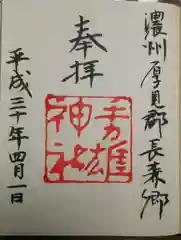 濃州厚見郡長森郷
奉拝
手力雄
神社
平成三十年四月一日